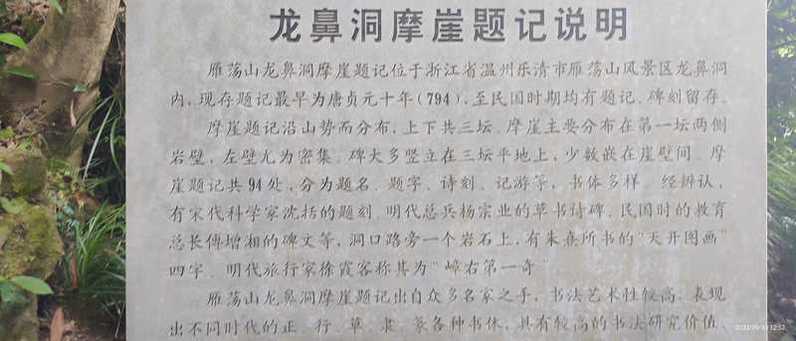 龙鼻洞摩崖题记说明
雁荡山龙鼻洞摩崖题记位于浙江省温州乐清市雁荡山风景区龙鼻洞
内,现存题记最早为唐贞元十年(794),至民国时期均有题记、碑刻留存。
摩崖题记沿山势而分布,上下共三坛、摩崖主要分布在第一坛两侧
岩壁,左壁尤为密集。碑大多竖立在三坛平地上,少数嵌在崖壁间、摩
崖题记共94处,分为题名、题字、诗刻、记游等,书体多样、经辨认,
有宋代科学家沈括的题刻、明代总兵杨宗业的草书诗碑、民国时的教育
总长傅增湘的碑文等,洞口路旁一个岩石上,有朱熹所书的"天开图画"
四字、明代旅行家徐霞客称其为"嶂右第一奇"
雁荡山龙鼻洞摩崖题记出自众多名家之手,书法艺术性较高、表现
出不同时代的正、行、草、隶、篆各种书体,具有较高的书法研究价值、